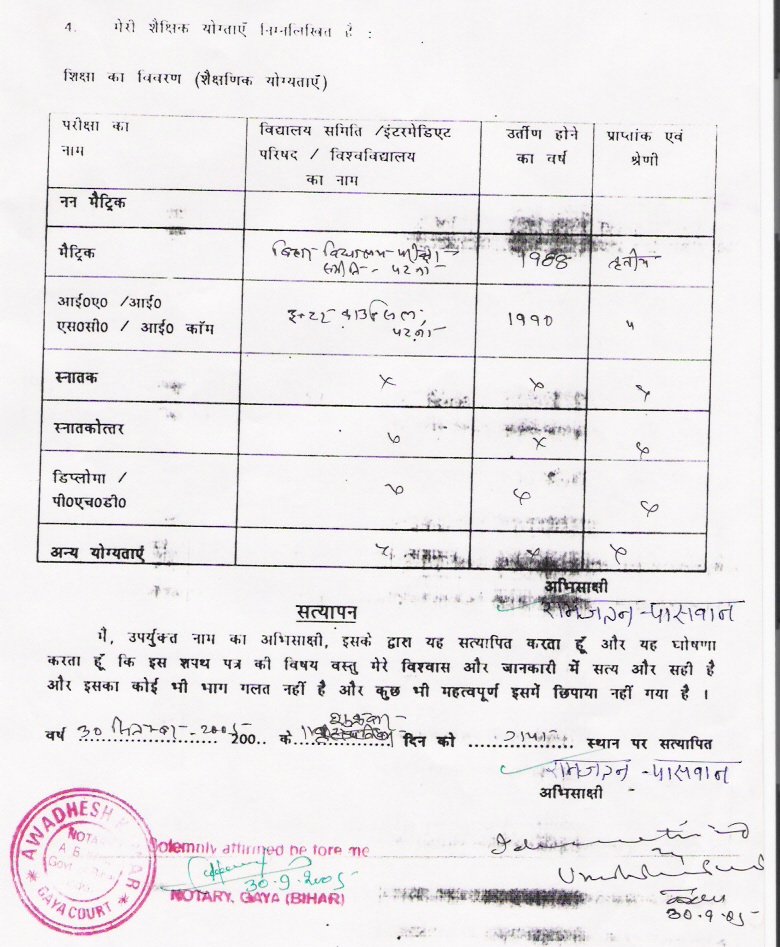 4. मेरी शैक्षिक योग्ताएँ निम्नलिखित है :
शिक्षा का विवरण (शैक्षणिक योग्यताएँ)
परीक्षा का नाम
विद्यालय समिति /इंटरमेडिएट परिषद / विश्वविद्यालय का नाम
उर्तीण होने का वर्ष
प्राप्तांक एवं श्रेणी
नन मैट्रिक
मैट्रिक
बिहार विद्यालय परीक्षा
समिति - पटना
1988
तृतीय
आई०ए० /आई०
एस०सी० / आई० कॉम
इन्टर काउन्सिल
पटना
1990
"
स्नातक x x x
स्नातकोत्तर x x x
डिप्लोमा /
पी०एच०डी० x x x
अन्य योग्यताएँ x x x
अभिसाक्षी
रामजतन पासवान
सत्यापन
मै, उपर्युक्त नाम का अभिसाक्षी, इसके द्वारा यह सत्यापित करता हूँ और यह घोषणा
करता हूँ कि इस शपथ पत्र की विषय वस्तु मेरे विश्वास और जानकारी में सत्य और सही है
और इसका कोई भी भाग गलत नहीं है और कुछ भी महत्वपूर्ण इसमें छिपाया नहीं गया है ।
शुक्रवार
वर्ष 30 सितम्बर - 2005 200.. के दिन को गया स्थान पर सत्यापित
रामजतन पासवान
अभिसाक्षी
AWADHESH KUMAR
NOTARY
GAYA COURT
Solemnly affirmed before me
30.9.2005
NOTARY, GAYA (BIHAR)
30.9.05